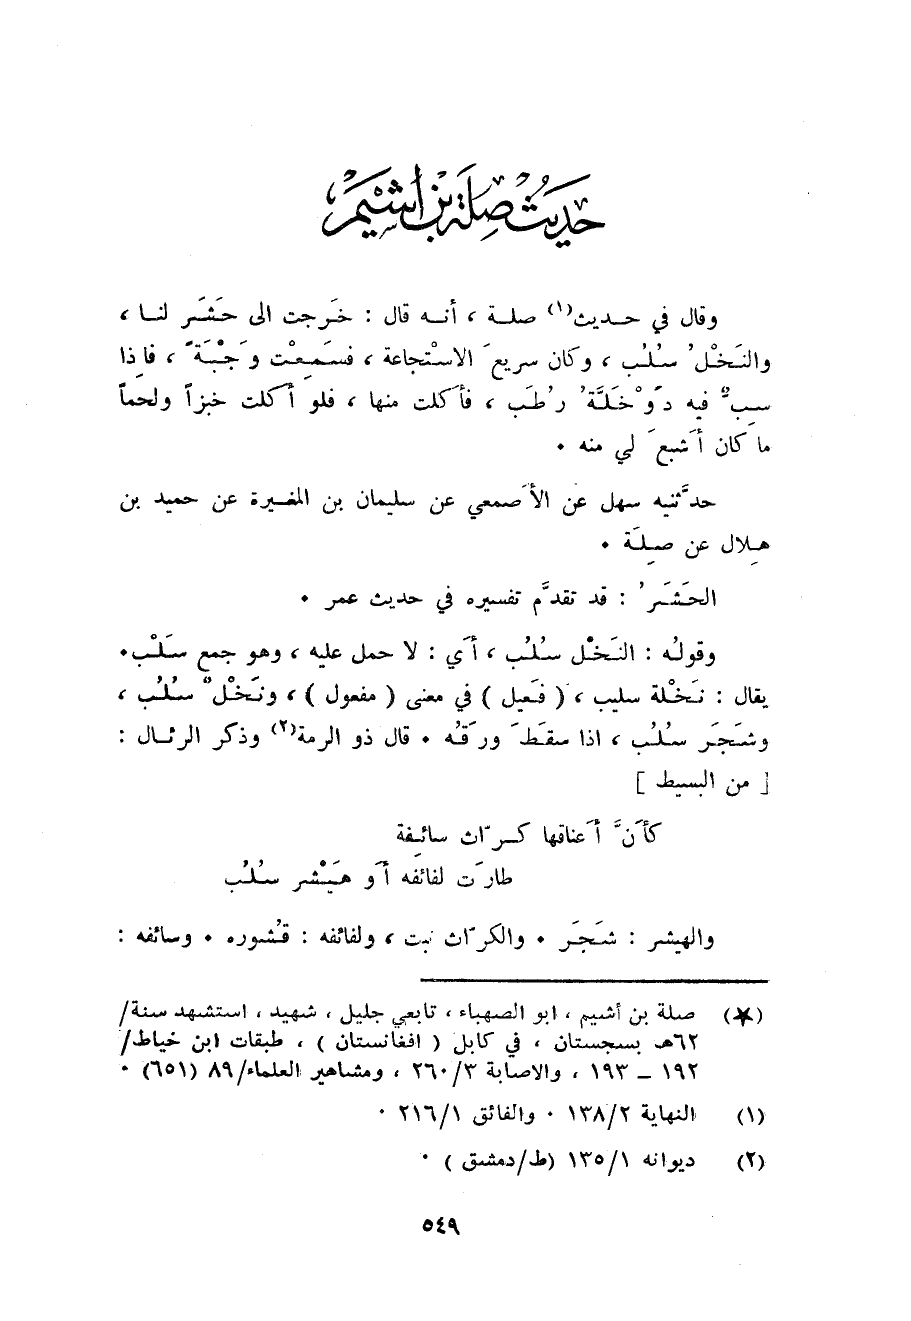 حديث صلة بن أشيم
وقال في حديث(١) صلة ، أنه قال : خَرجت الى حَشَر لنا ،
والنَخْلُ سُلُب ، وكان سريعَ الاسْتجاعة ، فسَمعْت وَجْبَةً ، فاذا
سِبٌّ فيه دَوْخَلَّةُ رُطَب ، فأَكلت منها ، فلو أَكلت خبزاً ولحماً
ما كان أَشبعَ لي منه ٠
حدَّثنيه سهل عن الأَصمعي عن سليمان بن المغيرة عن حميد بن
هِلال عن صِلَة ٠
الحَشَرُ : قد تقدَّم تفسيره في حديث عمر ٠
وقولُه : النَخْل سُلُب ، أَي : لا حمل عليه ، وهو جمع سَلْب٠
يقال : نَخْلة سليب ، ( فَعيل ) في معنى ( مفعول ) ، ونَخْلٌ سُلُب ،
وشَجَر سُلُب ، اذا سقَطَ ورَقُه ٠ قال ذو الرمة(٢) وذكر الرئال :
[ من البسيط ]
كأَنَّ أَعناقها كرّاث سائِفة
طارَت لفائفه أَو هَيْشر سُلُب
والهيشر : شَجَر ٠ والكرّاث نبت ، ولفائفه : قُشوره ٠ وسائفه :
(★) صلة بن أشيم ، ابو الصهباء ، تابعي جليل ، شهيد ، استشهد سنة/
٦٢هـ بسجستان ، في كابل ( افغانستان ) ، طبقات ابن خياط/
١٩٢ – ١٩٣ ، والاصابة ٢٦٠/٣ ، ومشاهير العلماء/٨٩ (٦٥١) ٠
(١) النهاية ١٣٨/٢ ٠ والفائق ٢١٦/١ ٠
(٢) ديوانه ١٣٥/١ (ط/دمشق ) ٠
٥٤٩